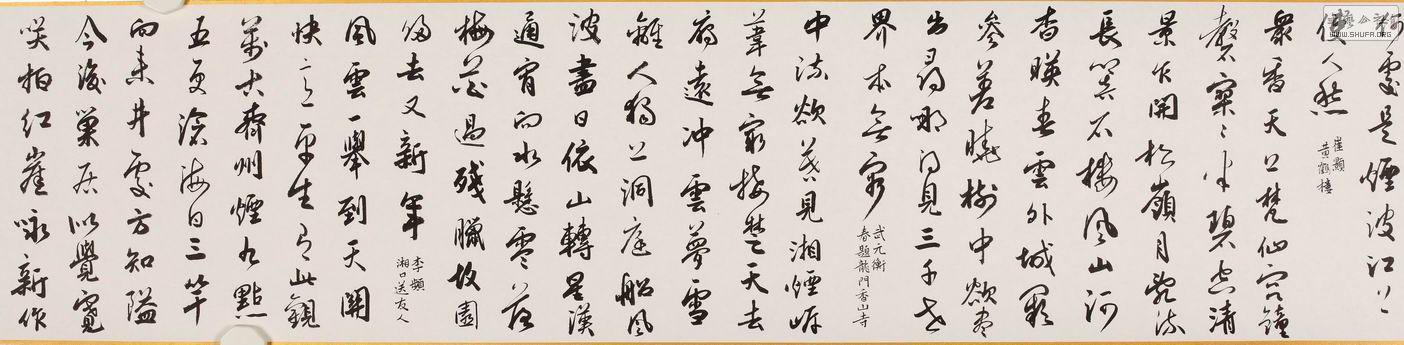 何處是煙波江上
使人愁
崔顥
黃鶴樓
眾香天上梵仙宮鐘
磬寥寥半碧空清
景乍開松嶺月亂流
長響石樓風山河
杳暎春雲外城闕
參差曉樹中欲盡
出尋那可見三千世
界本無窮
武元衡
春題龍門香山寺
中流欲暮見湘煙岸
葦無窮接楚天去
雁遠沖雲夢雪
離人獨上洞庭船風
波盡日依山轉星漢
通宵向水懸零落
梅花過殘臘故園
歸去又新年
李頻
湘口送友人
風雲一舉到天關
快意平生有此觀
萬古齊州煙九點
五更滄海日三竿
向來井處方知隘
今後巢居以覺寬
笑拍紅崖詠新作
WWW.SHUFA.ORG